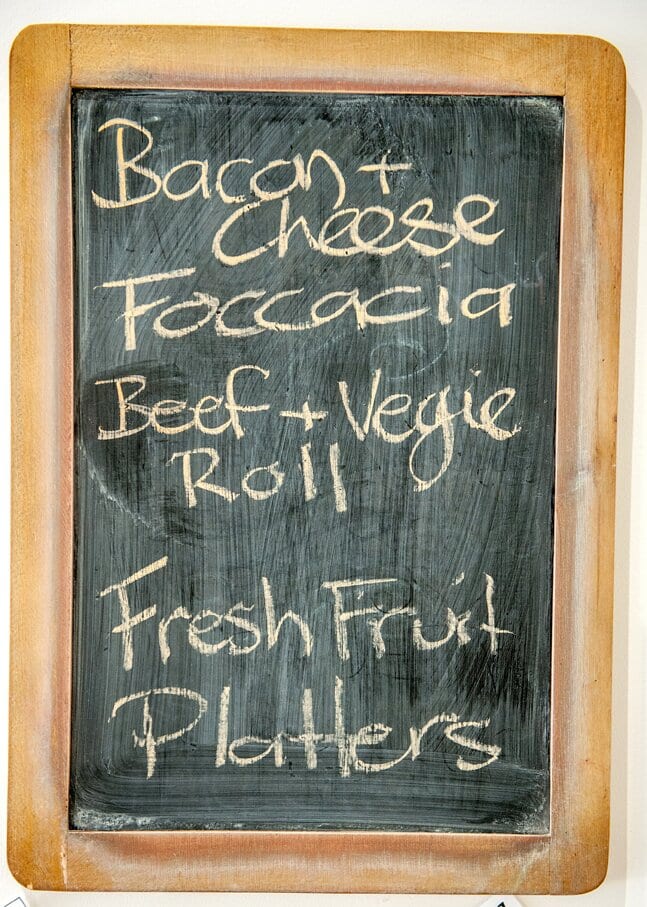 Bacon +
Cheese
Foccacia
Beef + Vegie
Roll
Fresh Fruit
Platters